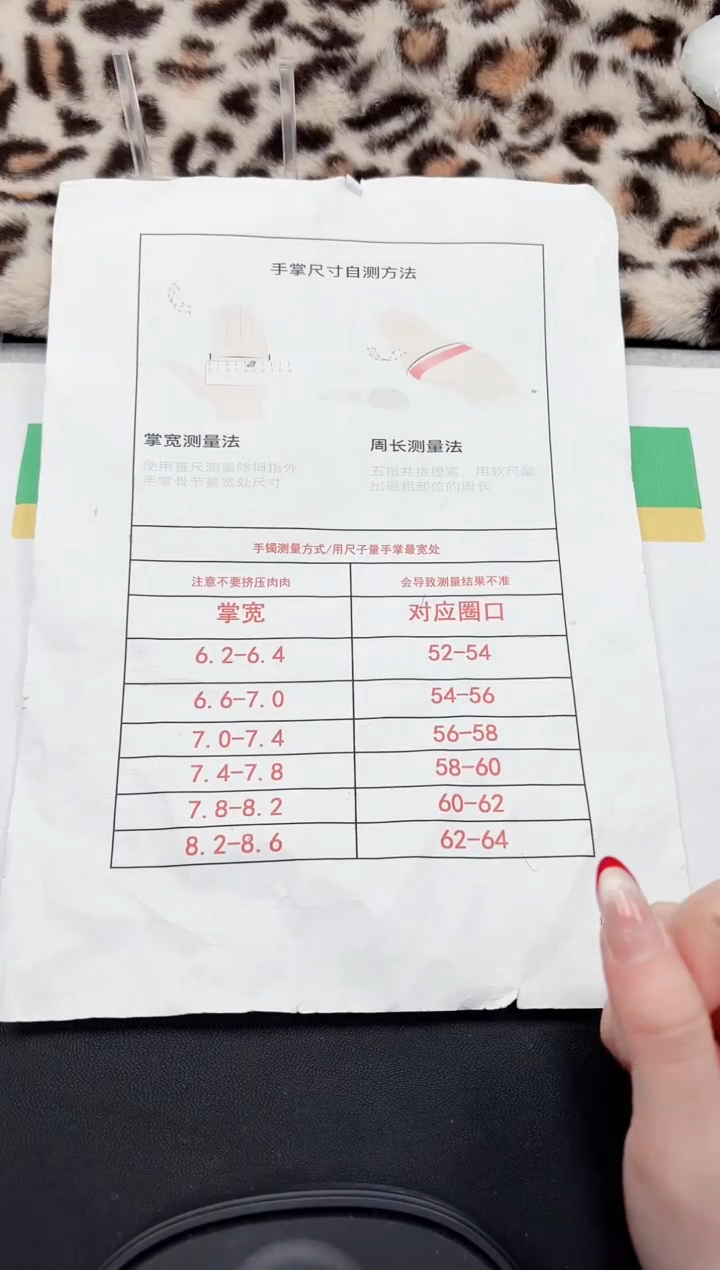 手掌尺寸自测方法
掌宽测量法
使用直尺测量除拇指外、
手掌骨节最宽处尺寸
周长测量法
五指并拢捏紧，用软尺量
出最粗部位的周长
手镯测量方式/用尺子量手掌最宽处
注意不要挤压肉肉
会导致测量结果不准
掌宽
对应圈口
6.2-6.4
52-54
6.6-7.0
54-56
7.0-7.4
56-58
7.4-7.8
58-60
7.8-8.2
60-62
8.2-8.6
62-64